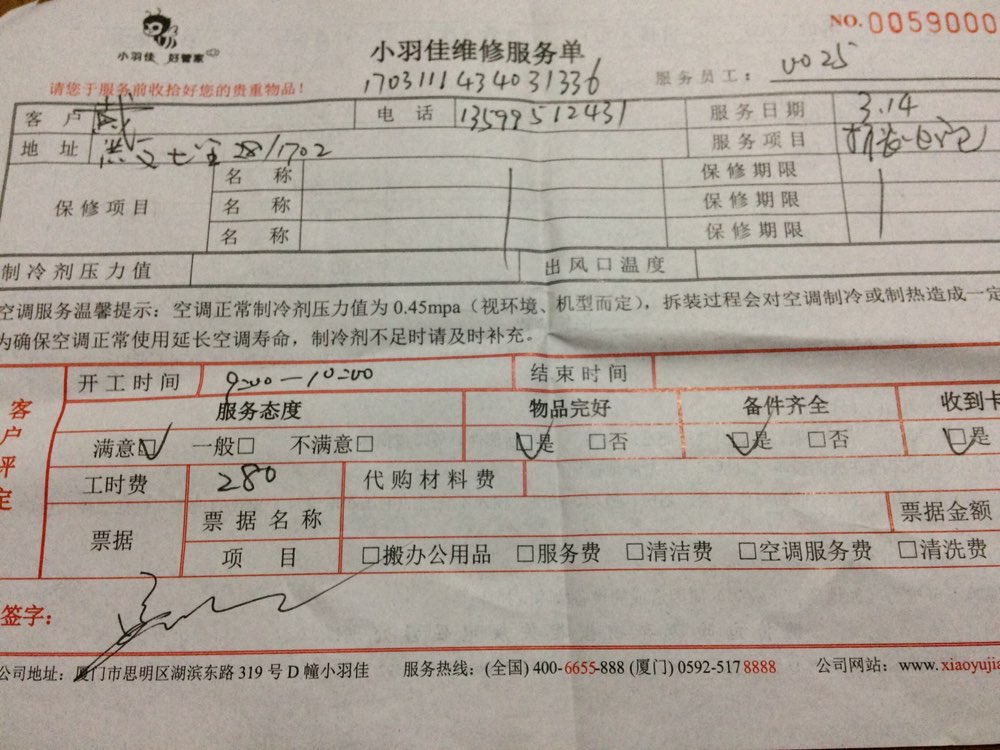 小羽佳 好管家
NO.0059000
小羽佳维修服务单
1703111434031336
服务员工： 0025
请您于服务前收拾好您的贵重物品！
客户 戴 电话 13599512431 服务日期 3.14
地址 28/1702 服务项目
保修项目 名称 保修期限
名称 保修期限
名称 保修期限
制冷剂压力值 出风口温度
空调服务温馨提示：空调正常制冷剂压力值为 0.45mpa（视环境、机型而定），拆装过程会对空调制冷或制热造成一定
为确保空调正常使用延长空调寿命，制冷剂不足时请及时补充。
客户评定
开工时间 9:00—10:00 结束时间
服务态度 物品完好 备件齐全 收到卡
满意☑ 一般□ 不满意□ ☑是 □否 ☑是 □否 ☑是
工时费 280 代购材料费
票据 票据名称 票据金额
项目 □搬办公用品 □服务费 □清洁费 □空调服务费 □清洗费
签字：
公司地址：厦门市思明区湖滨东路 319 号 D 幢小羽佳 服务热线：(全国) 400-6655-888 (厦门) 0592-517 8888 公司网站：www.xiaoyujia